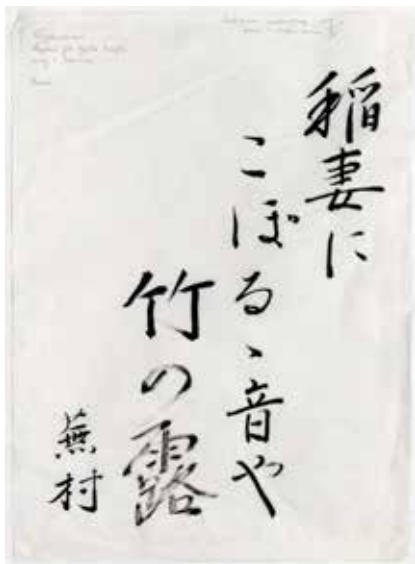 稲妻に
こぼるゝ音や
竹の露
蕪村